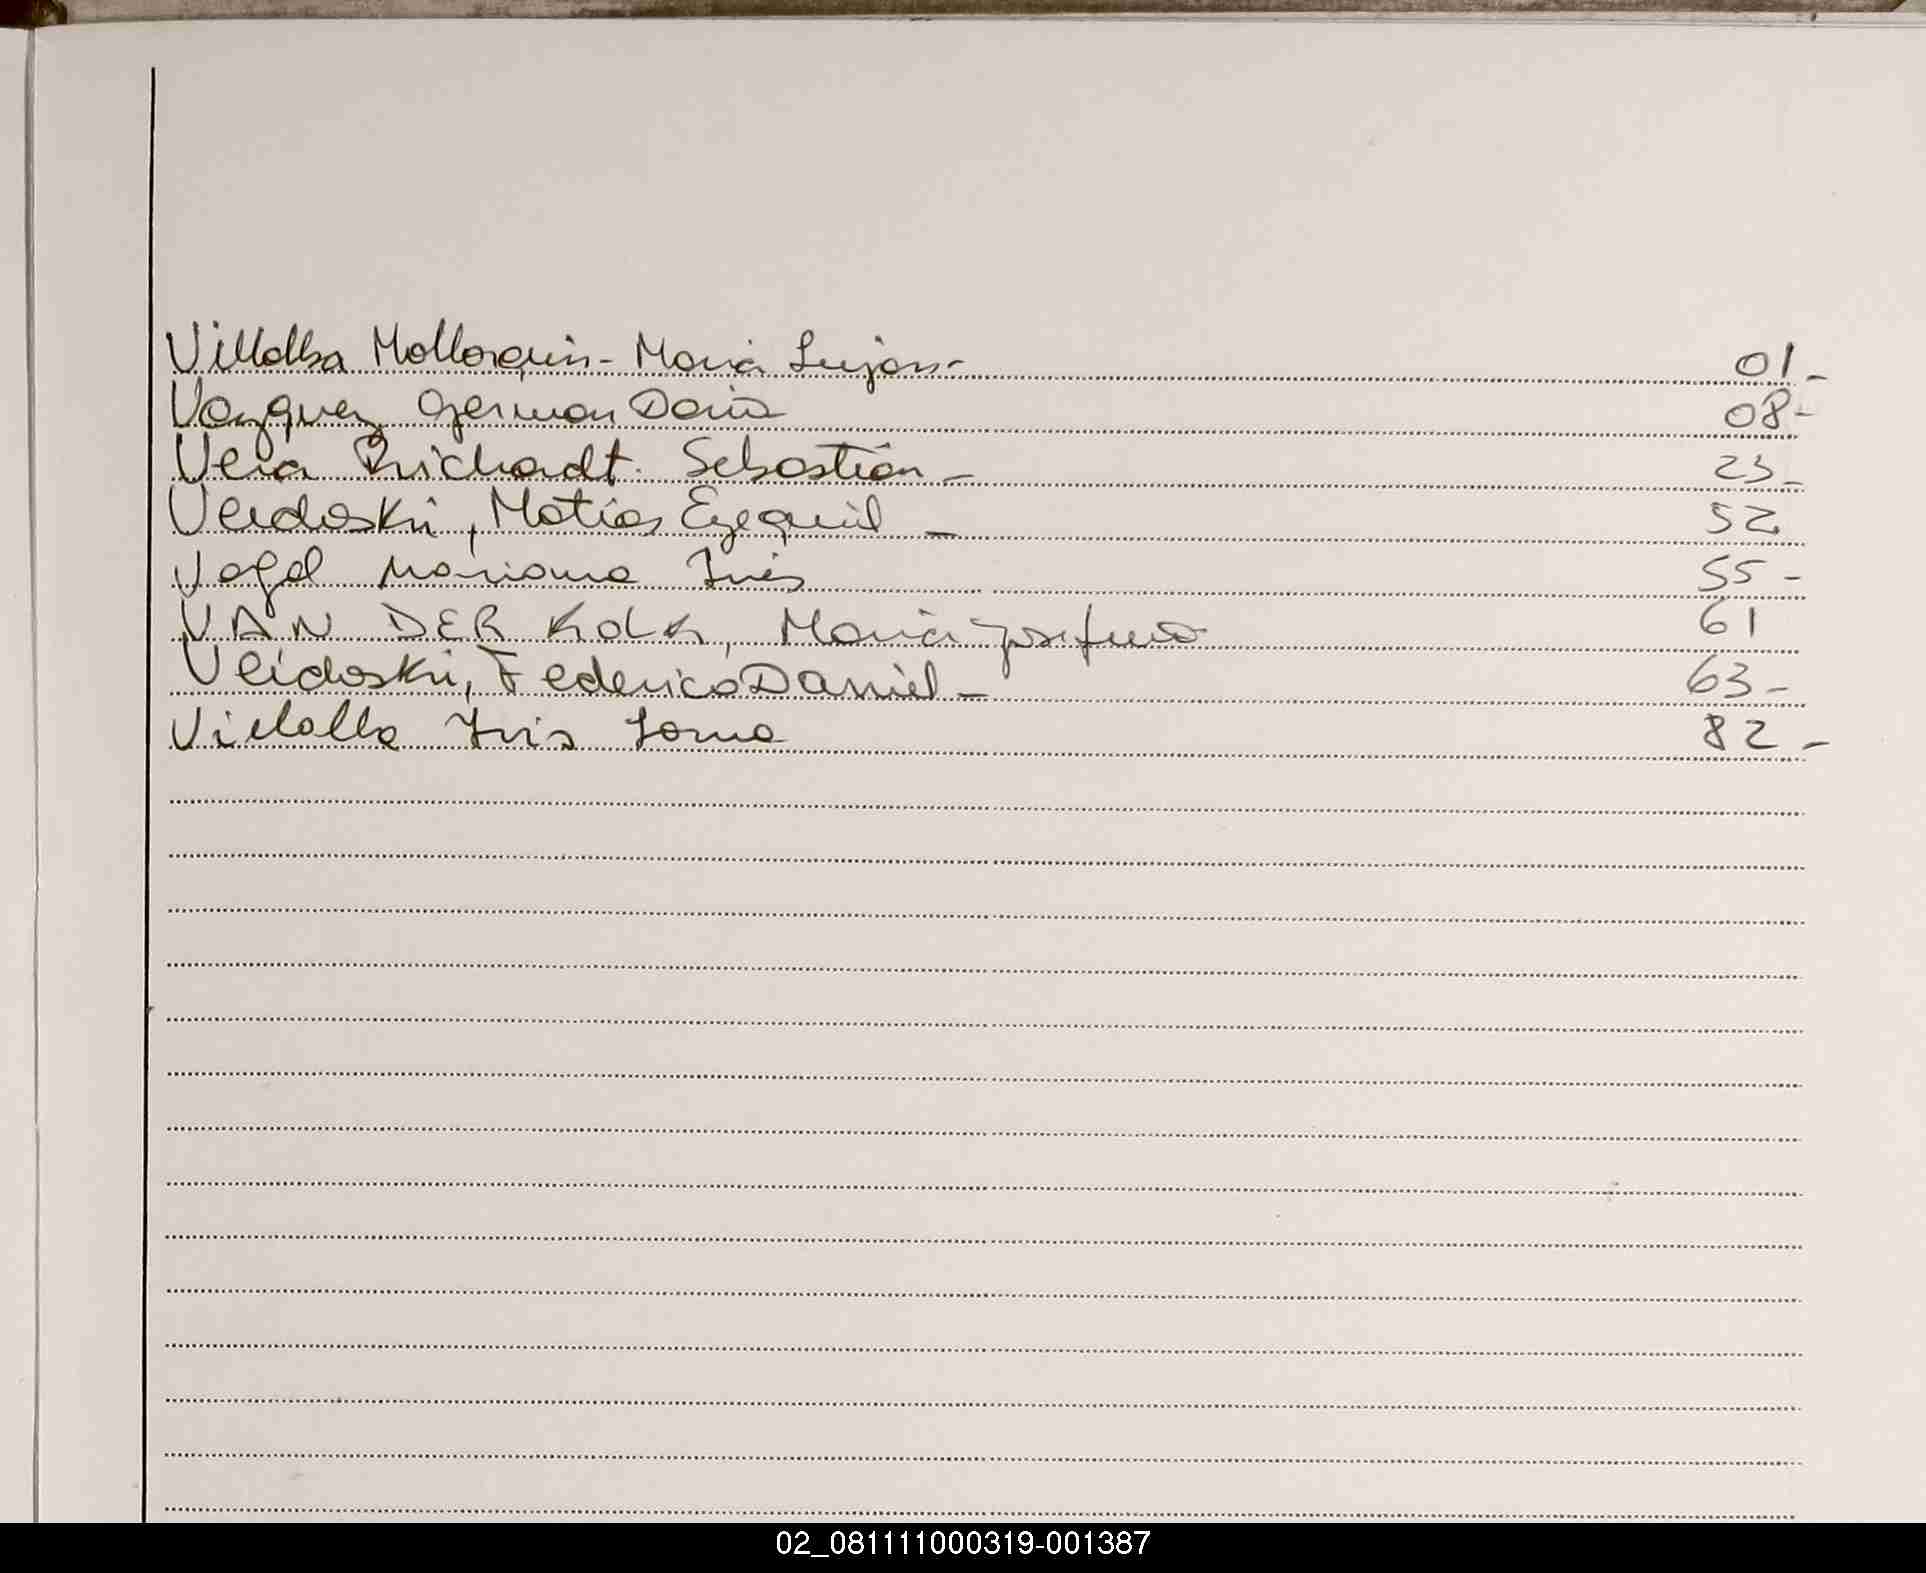 Villalba Mallorquin - Maria Lujan - 01 -
Vazquez German Dario 08 -
Vera Richardt. Sebastian - 23 -
Verdoski, Matias Ezequiel - 52
Vogel Mariana Ines 55 -
VAN DER KOLK, Maria Josefina 61
Veidoski, Federico Daniel - 63 -
Villalba Iris Lorna 82 -
02_081111000319-001387